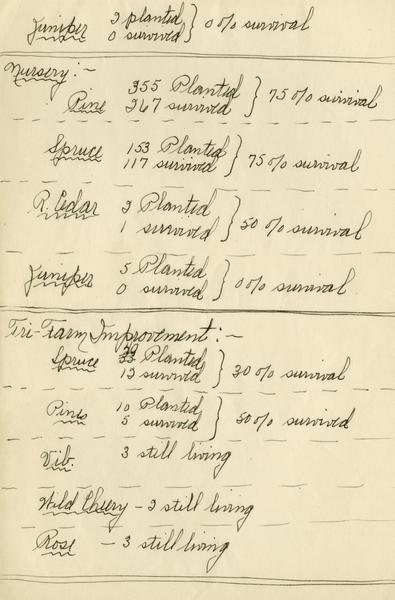 Juniper 2 planted
0 survived } 0% survival
Nursery:-
Pine 355 Planted
267 survived } 75% survival
Spruce 153 Planted
117 survived } 75% survival
R. Cedar 2 Planted
1 survived } 50% survival
Juniper 5 Planted
0 survived } 0% survival
Tri-Farm Improvement:-
Spruce Planted
13 survived } 30% survival
Pines 10 Planted
5 survived } 50% survived
Vib. 3 still living
Wild Cherry - 2 still living
Rose - 3 still living